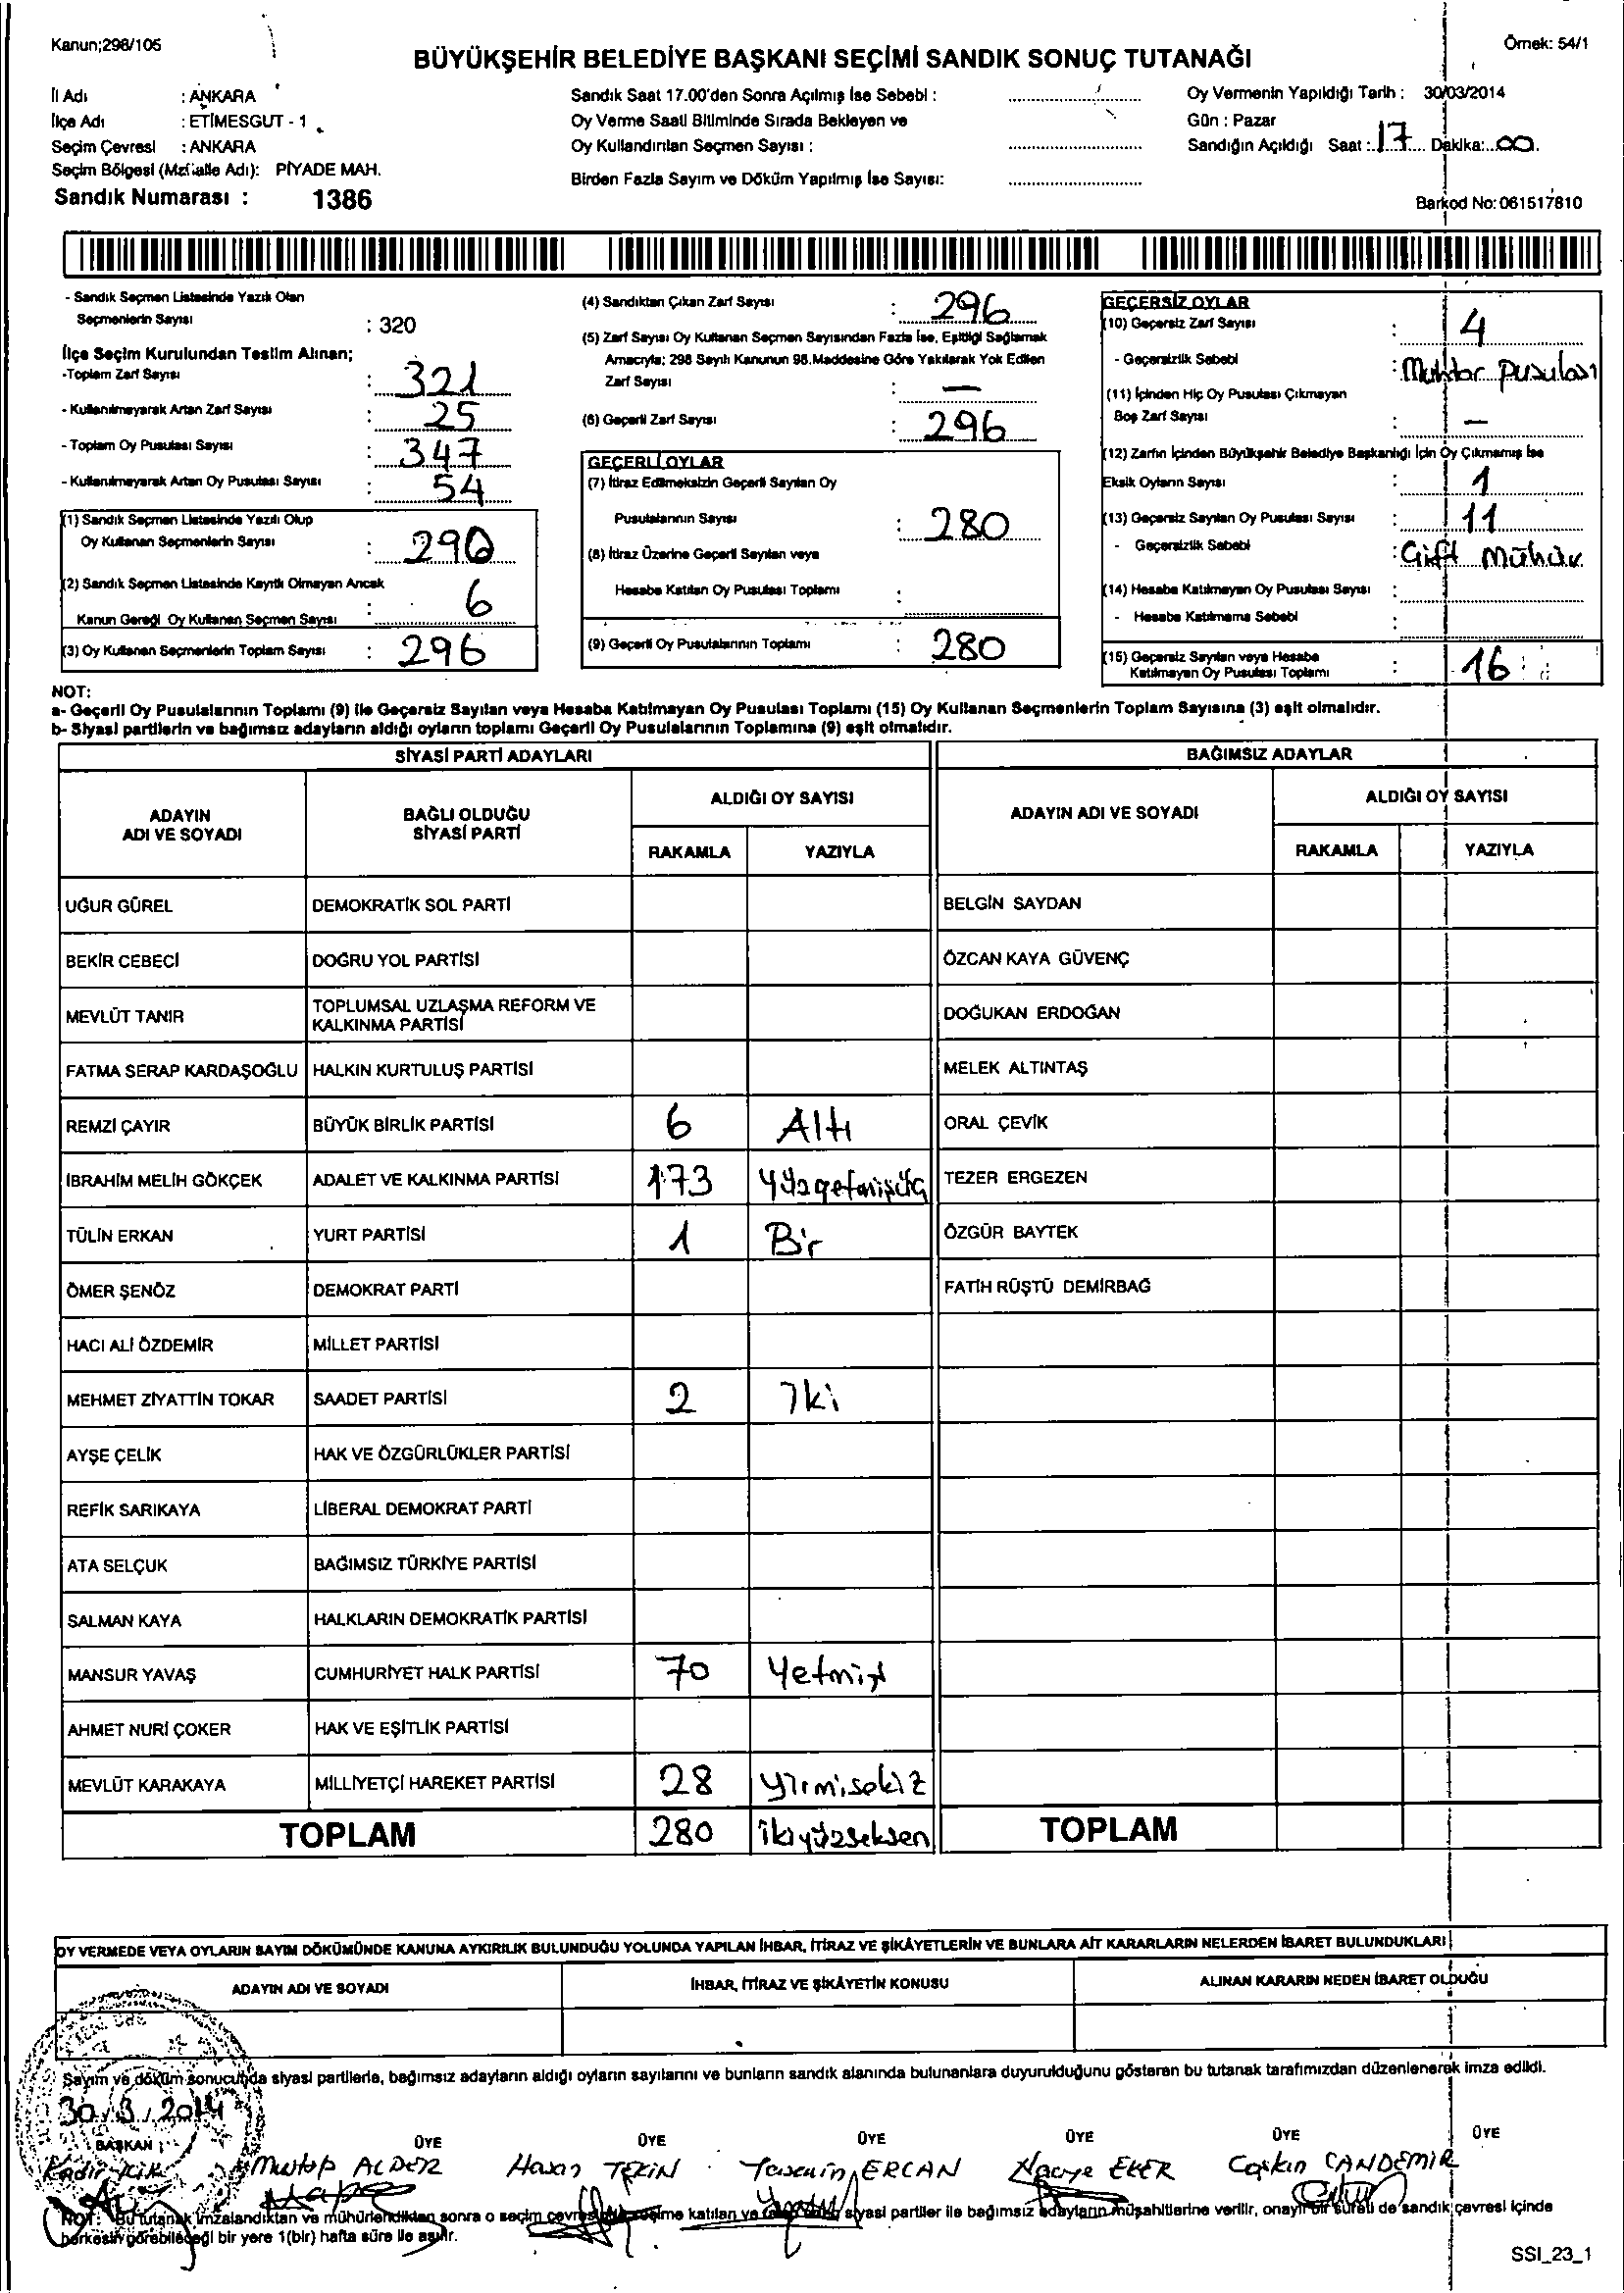 Kanun;298/105
Örnek: 54/1
BÜYÜKŞEHİR BELEDİYE BAŞKANI SEÇİMİ SANDIK SONUÇ TUTANAĞI
İl Adı : ANKARA
İlçe Adı : ETİMESGUT - 1
Seçim Çevresi : ANKARA
Seçim Bölgesi (Mahalle Adı): PİYADE MAH.
Sandık Numarası : 1386
Sandık Saat 17.00'den Sonra Açılmış İse Sebebi :
Oy Verme Saati Bitiminde Sırada Bekleyen ve
Oy Kullandırılan Seçmen Sayısı :
Birden Fazla Sayım ve Döküm Yapılmış İse Sayısı:
Oy Vermenin Yapıldığı Tarih : 30/03/2014
Gün : Pazar
Sandığın Açıldığı Saat : 17 Dakika: 00
Barkod No: 061517810
- Sandık Seçmen Listesinde Yazılı Olan
Seçmenlerin Sayısı : 320
İlçe Seçim Kurulundan Teslim Alınan;
-Toplam Zarf Sayısı : 321
- Kullanılmayarak Artan Zarf Sayısı : 25
- Toplam Oy Pusulası Sayısı : 347
- Kullanılmayarak Artan Oy Pusulası Sayısı : 54
(1) Sandık Seçmen Listesinde Yazılı Olup
Oy Kullanan Seçmenlerin Sayısı : 290
(2) Sandık Seçmen Listesinde Kayıtlı Olmayan Ancak
Kanun Gereği Oy Kullanan Seçmen Sayısı : 6
(3) Oy Kullanan Seçmenlerin Toplam Sayısı : 296
(4) Sandıktan Çıkan Zarf Sayısı : 296
(5) Zarf Sayısı Oy Kullanan Seçmen Sayısından Fazla İse, Eşitliği Sağlamak
Amacıyla; 298 Sayılı Kanunun 98.Maddesine Göre Yakılarak Yok Edilen
Zarf Sayısı : —
(6) Geçerli Zarf Sayısı : 296
GEÇERLİ OYLAR
(7) İtiraz Edilmeksizin Geçerli Sayılan Oy
Pusulalarının Sayısı : 280
(8) İtiraz Üzerine Geçerli Sayılan veya
Hesaba Katılan Oy Pusulası Toplamı :
(9) Geçerli Oy Pusulalarının Toplamı : 280
GEÇERSİZ OYLAR
(10) Geçersiz Zarf Sayısı : 4
- Geçersizlik Sebebi : Muhtar pusulası
(11) İçinden Hiç Oy Pusulası Çıkmayan
Boş Zarf Sayısı : —
(12) Zarfın İçinden Büyükşehir Belediye Başkanlığı İçin Oy Çıkmamış İse
Eksik Oyların Sayısı : 1
(13) Geçersiz Sayılan Oy Pusulası Sayısı : 11
- Geçersizlik Sebebi : Çift Mühür
(14) Hesaba Katılmayan Oy Pusulası Sayısı :
- Hesaba Katılmama Sebebi :
(15) Geçersiz Sayılan veya Hesaba
Katılmayan Oy Pusulası Toplamı : 16
NOT:
a- Geçerli Oy Pusulalarının Toplamı (9) ile Geçersiz Sayılan veya Hesaba Katılmayan Oy Pusulası Toplamı (15) Oy Kullanan Seçmenlerin Toplam Sayısına (3) eşit olmalıdır.
b- Siyasi partilerin ve bağımsız adayların aldığı oyların toplamı Geçerli Oy Pusulalarının Toplamına (9) eşit olmalıdır.
SİYASİ PARTİ ADAYLARI
BAĞIMSIZ ADAYLAR
ADAYIN
ADI VE SOYADI
BAĞLI OLDUĞU
SİYASİ PARTİ
ALDIĞI OY SAYISI
RAKAMLA YAZIYLA
ADAYIN ADI VE SOYADI
ALDIĞI OY SAYISI
RAKAMLA YAZIYLA
UĞUR GÜREL DEMOKRATİK SOL PARTİ BELGİN SAYDAN
BEKİR CEBECİ DOĞRU YOL PARTİSİ ÖZCAN KAYA GÜVENÇ
MEVLÜT TANIR TOPLUMSAL UZLAŞMA REFORM VE
KALKINMA PARTİSİ DOĞUKAN ERDOĞAN
FATMA SERAP KARDAŞOĞLU HALKIN KURTULUŞ PARTİSİ MELEK ALTINTAŞ
REMZİ ÇAYIR BÜYÜK BİRLİK PARTİSİ 6 Altı ORAL ÇEVİK
İBRAHİM MELİH GÖKÇEK ADALET VE KALKINMA PARTİSİ 173 Yüzyetmişüç TEZER ERGEZEN
TÜLİN ERKAN YURT PARTİSİ 1 Bir ÖZGÜR BAYTEK
ÖMER ŞENÖZ DEMOKRAT PARTİ FATİH RÜŞTÜ DEMİRBAĞ
HACI ALİ ÖZDEMİR MİLLET PARTİSİ
MEHMET ZİYATTİN TOKAR SAADET PARTİSİ 2 İki
AYŞE ÇELİK HAK VE ÖZGÜRLÜKLER PARTİSİ
REFİK SARIKAYA LİBERAL DEMOKRAT PARTİ
ATA SELÇUK BAĞIMSIZ TÜRKİYE PARTİSİ
SALMAN KAYA HALKLARIN DEMOKRATİK PARTİSİ
MANSUR YAVAŞ CUMHURİYET HALK PARTİSİ 70 Yetmiş
AHMET NURİ ÇOKER HAK VE EŞİTLİK PARTİSİ
MEVLÜT KARAKAYA MİLLİYETÇİ HAREKET PARTİSİ 28 Yirmisekiz
TOPLAM 280 ikiyüzseksen TOPLAM
OY VERMEDE VEYA OYLARIN SAYIM DÖKÜMÜNDE KANUNA AYKIRILIK BULUNDUĞU YOLUNDA YAPILAN İHBAR, İTİRAZ VE ŞİKÂYETLERİN VE BUNLARA AİT KARARLARIN NELERDEN İBARET BULUNDUKLARI
ADAYIN ADI VE SOYADI İHBAR, İTİRAZ VE ŞİKÂYETİN KONUSU ALINAN KARARIN NEDEN İBARET OLDUĞU
Sayım ve döküm sonucunda siyasi partilerle, bağımsız adayların aldığı oyların sayılarını ve bunların sandık alanında bulunanlara duyurulduğunu gösteren bu tutanak tarafımızdan düzenlenerek imza edildi.
30/3/2014
BAŞKAN ÜYE ÜYE ÜYE ÜYE ÜYE ÜYE
Kadir Mustafa ALDER Hasan TEKİN Yasemin ERCAN Naciye EKER Coşkun CANDEMİR
NOT: Bu tutanak imzalandıktan ve mühürlendikten sonra o seçim çevresinde seçime katılan ve siyasi partiler ile bağımsız adayların müşahitlerine verilir, onaylı bir sureti de sandık çevresi içinde
herkesin görebileceği bir yere 1(bir) hafta süre ile asılır.
SSI_23_1